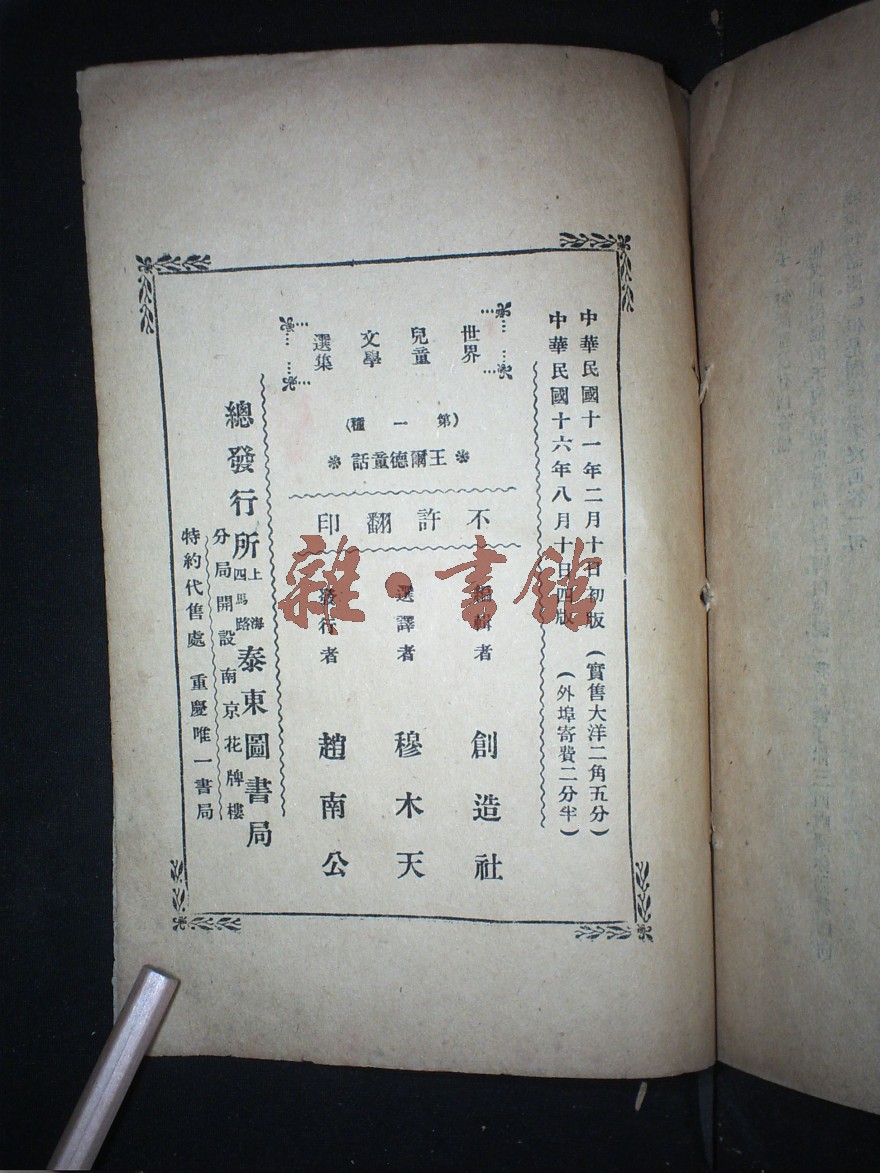 中華民國十一年二月十日初版 (實售大洋二角五分)
中華民國十六年八月十日四版 (外埠寄費二分半)
世界
兒童
文學
選集
(第一種)
王爾德童話
不許翻印
編輯者 創造社
選譯者 穆木天
發行者 趙南公
總發行所 上海四馬路 泰東圖書局
分局開設南京花牌樓
特約代售處 重慶唯一書局
雜·書館